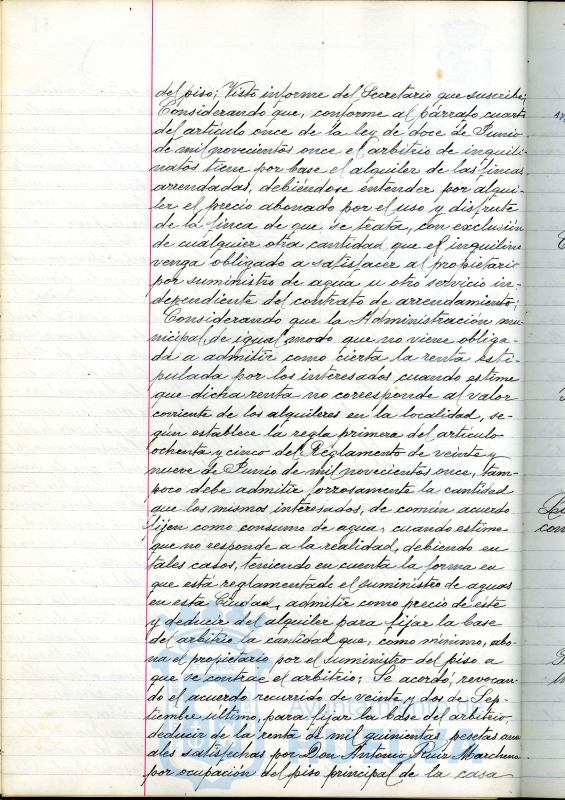 del piso; Visto informe del Secretario que suscribe;
Considerando que, conforme al párrafo cuarto
del artículo once de la ley de doce de Junio
de mil novecientos once el arbitrio de inquili-
natos tiene por base el alquiler de las fincas
arrendadas, debiéndose entender por alqui-
ler el precio abonado por el uso y disfrute
de la finca de que se trata, con exclusión
de cualquier otra cantidad que el inquilino
venga obligado a satisfacer al propietario
por suministro de agua u otro servicio in-
dependiente del contrato de arrendamiento;
Considerando que la Administración mu-
nicipal, de igual modo que no viene obliga-
da a admitir como cierta la renta esti-
pulada por los interesados cuando estime
que dicha renta no corresponde al valor
corriente de los alquileres en la localidad, se-
gún establece la regla primera del artículo
ochenta y cinco del Reglamento de veinte y
nueve de Junio de mil novecientos once, tam-
poco debe admitir forzosamente la cantidad
que los mismos interesados, de común acuerdo
fijen como consumo de agua, cuando estime
que no responde a la realidad, debiendo en
tales casos, teniendo en cuenta la forma en
que está reglamentado el suministro de aguas
en esta Ciudad, admitir como precio de éste
y deducir del alquiler para fijar la base
del arbitrio la cantidad que, como mínimo, abo-
na el propietario por el suministro del piso a
que se contrae el arbitrio; Se acordó, revocan-
do el acuerdo recurrido de veinte y dos de Sep-
tiembre último, para fijar la base del arbitrio,
deducir de la renta de mil quinientas pesetas anu-
ales satisfechas por Don Antonio Ruiz Marchena
por ocupación del piso principal de la casa
Ayuntamiento de